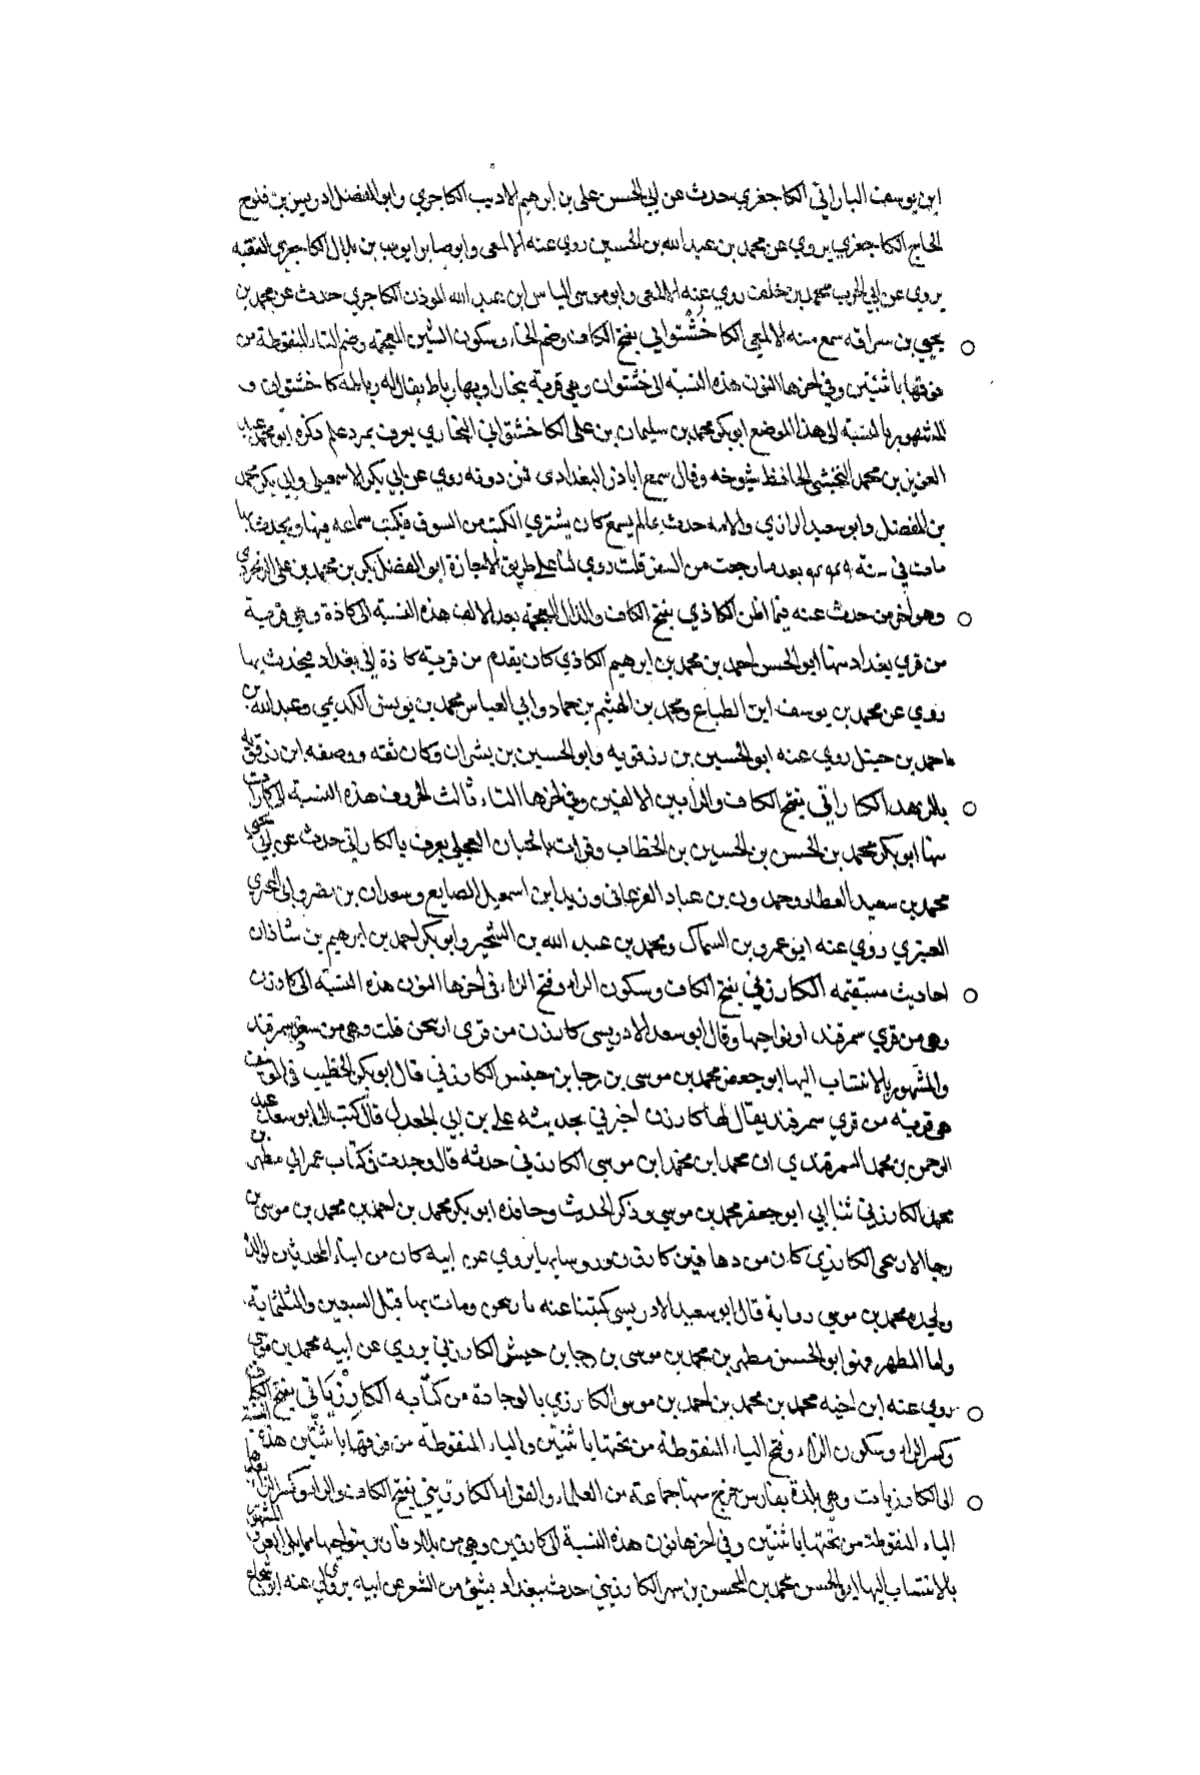 ابن يوسف الباراني الكاجغري حدث عن ابي الحسن علي بن ابرهيم الاديب الكاجري وابو الفضل ادريس بن فتوح
الحاج الكاجغري يروي عن محمد بن عبد الله بن الحسين روي عنه الالمعي وابو صابر ايوب بن بلال الكاجري الفقيه
يروي عن ابي الحرب محمد بن خلف روي عنه الالمعي وابو موسي الياس ابن عبد الله الموذن الكاجري حدث عن محمد بن
يحيي بن سراقه سمع منه الالمعي الكاخُشْتُواني بفتح الكاف وضم الخاء وسكون الشين المعجمة وضم التاء المنقوطة من
فوقها باثنتين وفي اخرها النون هذه النسبة الى خشتوان وهي قرية ببخارا وبها رباط يقال له رباط كاخشتوان و
المشهور بالنسبة الى هذا الموضع ابو بكر محمد بن سليمان بن علي الكاخشتواني البخاري يعرف بمرد علم ذكره ابو محمد عبد
العزيز بن محمد النخشبي الحافظ شيوخه وقال سمع اباذر البغدادى فمن دونه روي عن ابي بكر الاسمعيلي وابي بكر محمد
بن الفضل وابو سعيد الرازي حدث عالم يسمع كان يشتري الكتب من السوق فيكتب سماعه فيها ويحدث بها
مات في سنة بعد ما رجعت من السفر قلت روي لنا على طريق الاجازة ابو الفضل بكر بن محمد بن علي الزرنجري
وهو اخر من حدث عنه فيما اظن الكاذي بفتح الكاف والذال المعجمة بعد الالف هذه النسبة الى كاذة وهي قرية
من قري بغداد منها ابو الحسن احمد بن محمد بن ابرهيم الكاذي كان يقدم من قريته كاذة الى بغداد فيحدث بها
روي عن محمد بن يوسف ابن الطباع ومحمد بن الهيثم بن حماد وابي العباس محمد بن يونس الكديمي وعبد الله بن
احمد بن حنبل روي عنه ابو الحسين بن رزقويه وابو الحسين بن بشران وكان ثقه ووصفه ابن رزقويه
بالزهد الكاراتي بفتح الكاف والرا بين الالفين وفي اخرها التاء ثالث الحروف هذه النسبة الى كارات
منها ابو بكر محمد بن الحسن بن الحسين بن الخطاب العجلي يعرف بالكاراتي حدث عن ابي يحيى
محمد بن سعيد العطار وحمدون بن عباد الفرغاني وزيد ابن اسمعيل الصايغ وسعدان بن نصر وابي البختري
العنبري روي عنه ابو عمرو بن السماك ومحمد بن عبد الله بن الشخير وابو بكر احمد بن ابرهيم بن شاذان
احاديث مستقيمه الكارزني بفتح الكاف وسكون الراء وفتح الزاء في اخرها النون هذه النسبة الى كارزن
وهى من قري سمرقند او نواحيها وقال ابو سعد الادريسى كارزن من قرى اربنجن قلت وهي من سغد سمرقند
والمشهور بالانتساب اليها ابو جعفر محمد بن موسى بن رجا بن حنش الكارزني قال ابو بكر الخطيب في الموتنف
هى قرية من قري سمرقند يقال لها كارزن اخبرني بحديثه علي بن ابي المعدل قال كتب الى ابو سعد عبد
الرحمن بن محمد السمرقندي ان محمد ابن محمد ابن موسي الكارزني حدثه قال وجدت في كتاب عمر ابي مطهر بن
محمد الكارزني ثنا ابي ابو جعفر محمد بن موسي وذكر الحديث وحافده ابو بكر محمد بن احمد بن محمد بن موسى بن
رجا الكارزني كان من دهاقين كارزن وروسايها يروي عن ابيه كان من ابناء المحدثين لوالده
ولجده محمد بن موسي رواية قال ابو سعيد الادريسى كتبنا عنه ومات بها قبل السبعين والثلثماية
واما المطهر فهو ابو الحسن مطهر بن محمد بن موسى بن رجا بن حبش الكارزني يروي عن ابيه محمد بن موسى
روي عنه ابن اخيه محمد بن محمد بن احمد بن موسى الكارزي بالوجادة من كتابه الكارِزْيَاتي بفتح الكاف
وكسر الراء وسكون الزاء وفتح الياء المنقوطة من تحتها باثنتين والياء المنقوطة من فوقها باثنتين هذه النسبة
الى الكارزيات وهي بلدة بفارس خرج منها جماعة من العلماء والقراء الكارزيني بفتح الكاف والراء وكسر الزاء بعدها
الياء المنقوطة من تحتها باثنتين وفي اخرها نون هذه النسبة الى كارزين وهي من بلاد فارس بنواحيها مما يلى البحر المشهور
بالانتساب اليها ابو الحسن محمد بن الحسن بن سهر الكارزيني حدث ببغداد بشئ من الشعر عن ابيه روي لي عنه ابو شجاع